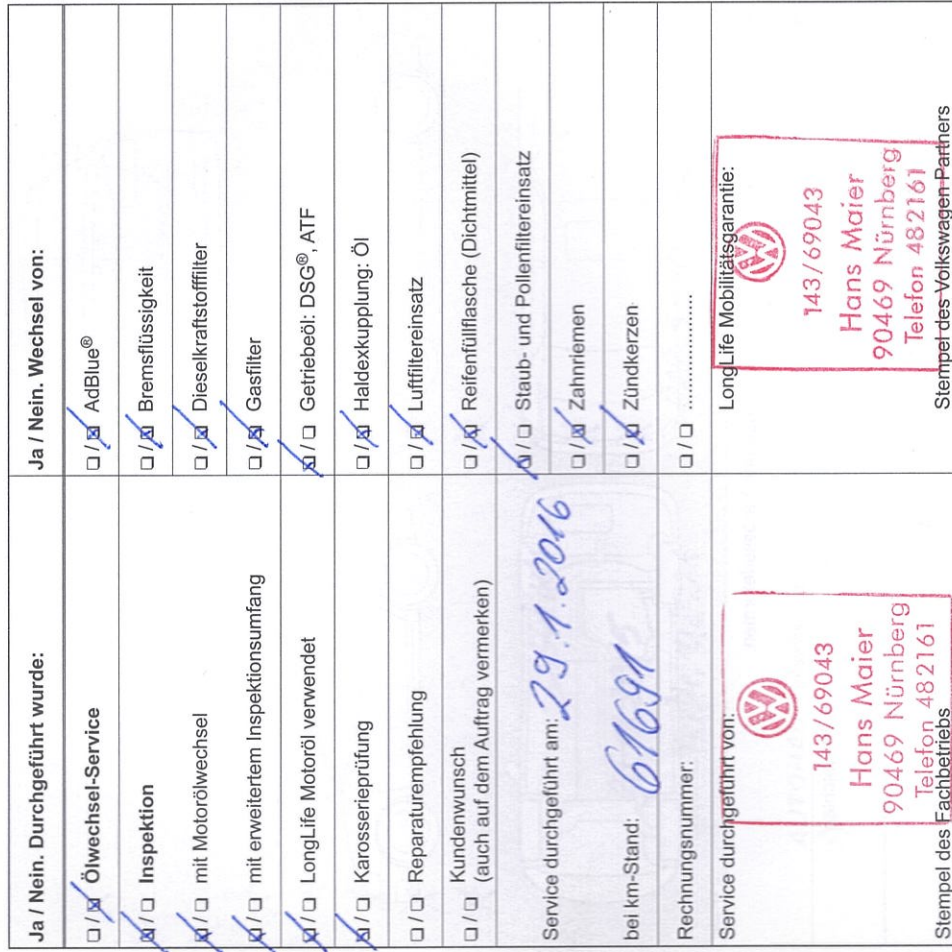 Ja / Nein. Durchgeführt wurde:
☐ / ☒ Ölwechsel-Service
☒ / ☐ Inspektion
☒ / ☐ mit Motorölwechsel
☒ / ☐ mit erweitertem Inspektionsumfang
☒ / ☐ LongLife Motoröl verwendet
☒ / ☐ Karosserieprüfung
☐ / ☐ Reparaturempfehlung
☐ / ☐ Kundenwunsch
(auch auf dem Auftrag vermerken)
Service durchgeführt am: 29.1.2016
bei km-Stand: 61691
Rechnungsnummer:
Service durchgeführt von:
143/69043
Hans Maier
90469 Nürnberg
Telefon 482161
Stempel des Fachbetriebs
Ja / Nein. Wechsel von:
☐ / ☒ AdBlue®
☐ / ☒ Bremsflüssigkeit
☐ / ☒ Dieselkraftstofffilter
☐ / ☒ Gasfilter
☒ / ☐ Getriebeöl: DSG®, ATF
☐ / ☒ Haldexkupplung: Öl
☐ / ☒ Luftfiltereinsatz
☐ / ☒ Reifenfüllflasche (Dichtmittel)
☒ / ☐ Staub- und Pollenfiltereinsatz
☐ / ☒ Zahnriemen
☐ / ☒ Zündkerzen
☐ / ☐ ........................
LongLife Mobilitätsgarantie:
143/69043
Hans Maier
90469 Nürnberg
Telefon 482161
Stempel des Volkswagen Partners